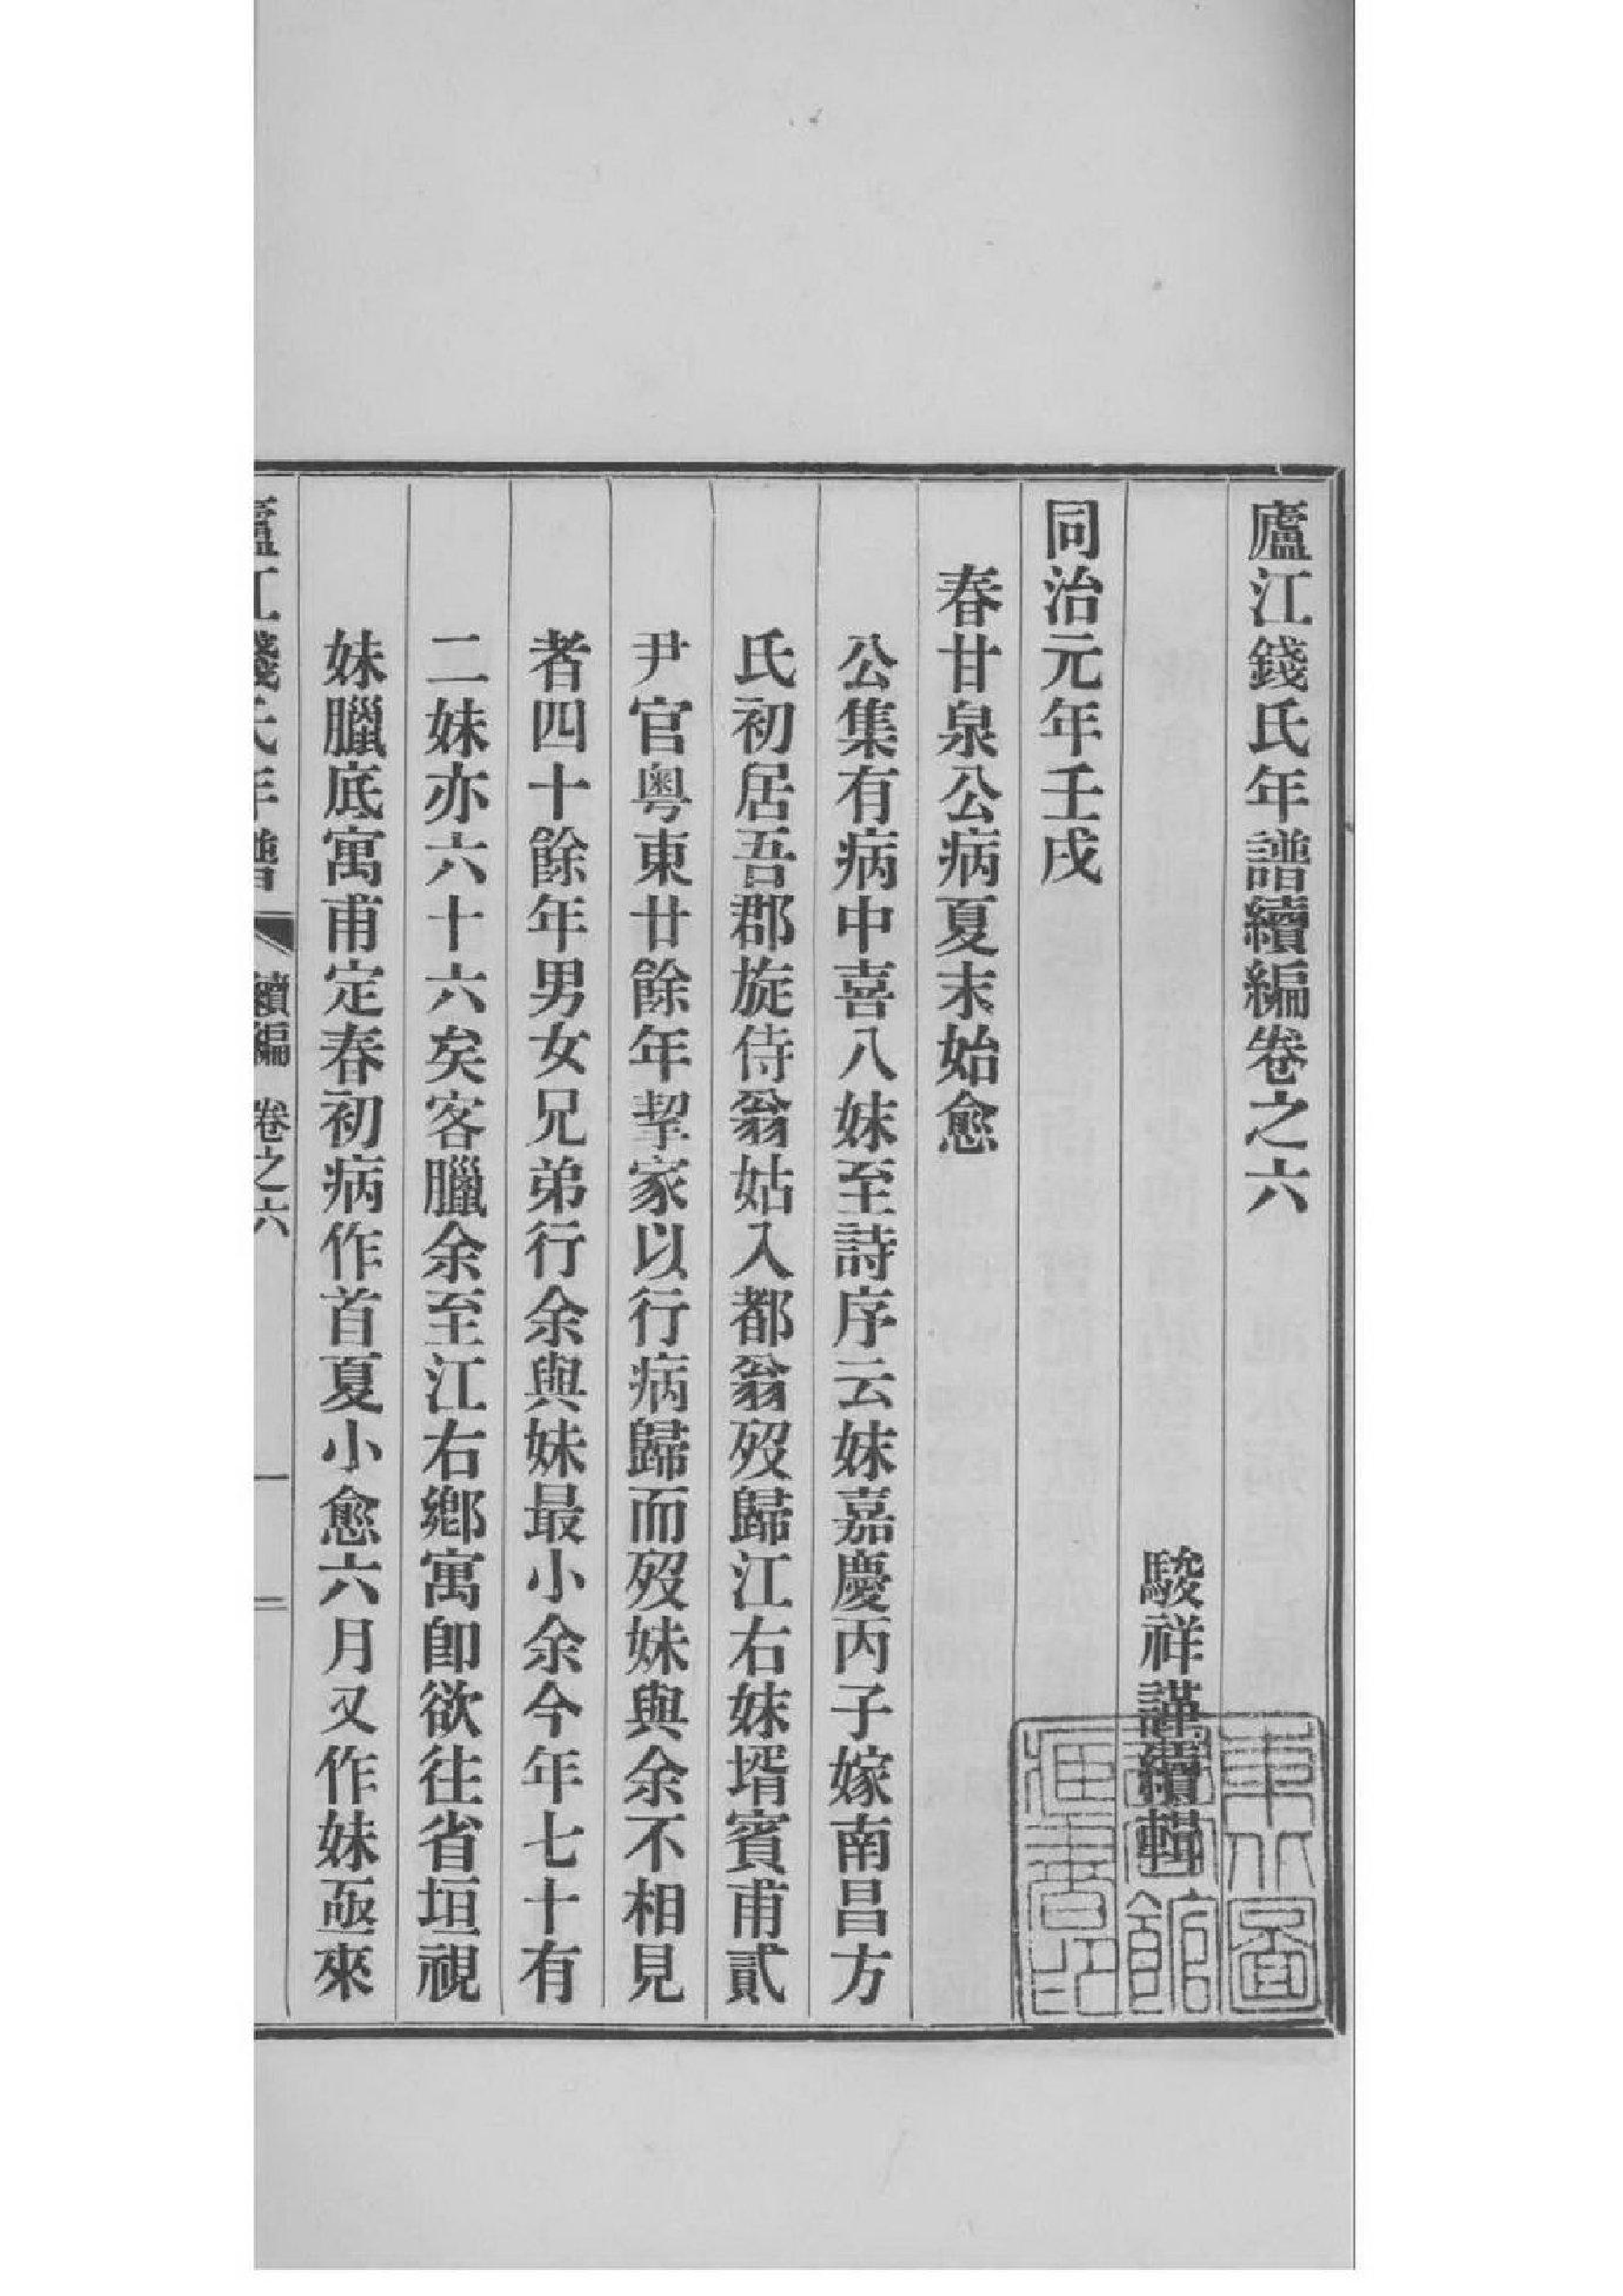 廬江錢氏年譜續編卷之六
駿祥謹續輯
同治元年壬戌
春甘泉公病夏末始愈
公集有病中喜八妹至詩序云妹嘉慶丙子嫁南昌方
氏初居吾郡旋侍翁姑入都翁歿歸江右妹壻賓甫貳
尹官粤東廿餘年挈家以行病歸而歿妹與余不相見
者四十餘年男女兄弟行余與妹最小余今年七十有
二妹亦六十六矣客臘余至江右鄉寓卽欲往省垣視
妹臘底寓甫定春初病作首夏小愈六月又作妹亟來
廬江錢氏年譜 續編 卷之六 一